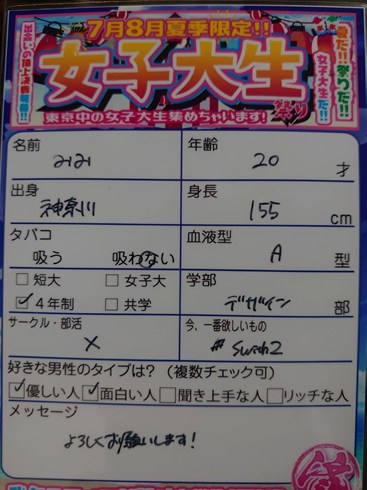 7月8月夏季限定!!
出会いの頂上決戦開幕!!
夏だ!!祭りだ!!
女子大生だ!!
女子大生
祭り
東京中の女子大生集めちゃいます!
名前 みみ
年齢 20 才
出身 神奈川
身長 155 cm
タバコ 吸う 吸わない
血液型 A 型
□短大 □女子大
☑4年制 □共学
学部 デザイン 部
サークル・部活 ×
今、一番欲しいもの
Switch2
好きな男性のタイプは?(複数チェック可)
☑優しい人 ☑面白い人 □聞き上手な人 □リッチな人
メッセージ
よろしくお願いします!